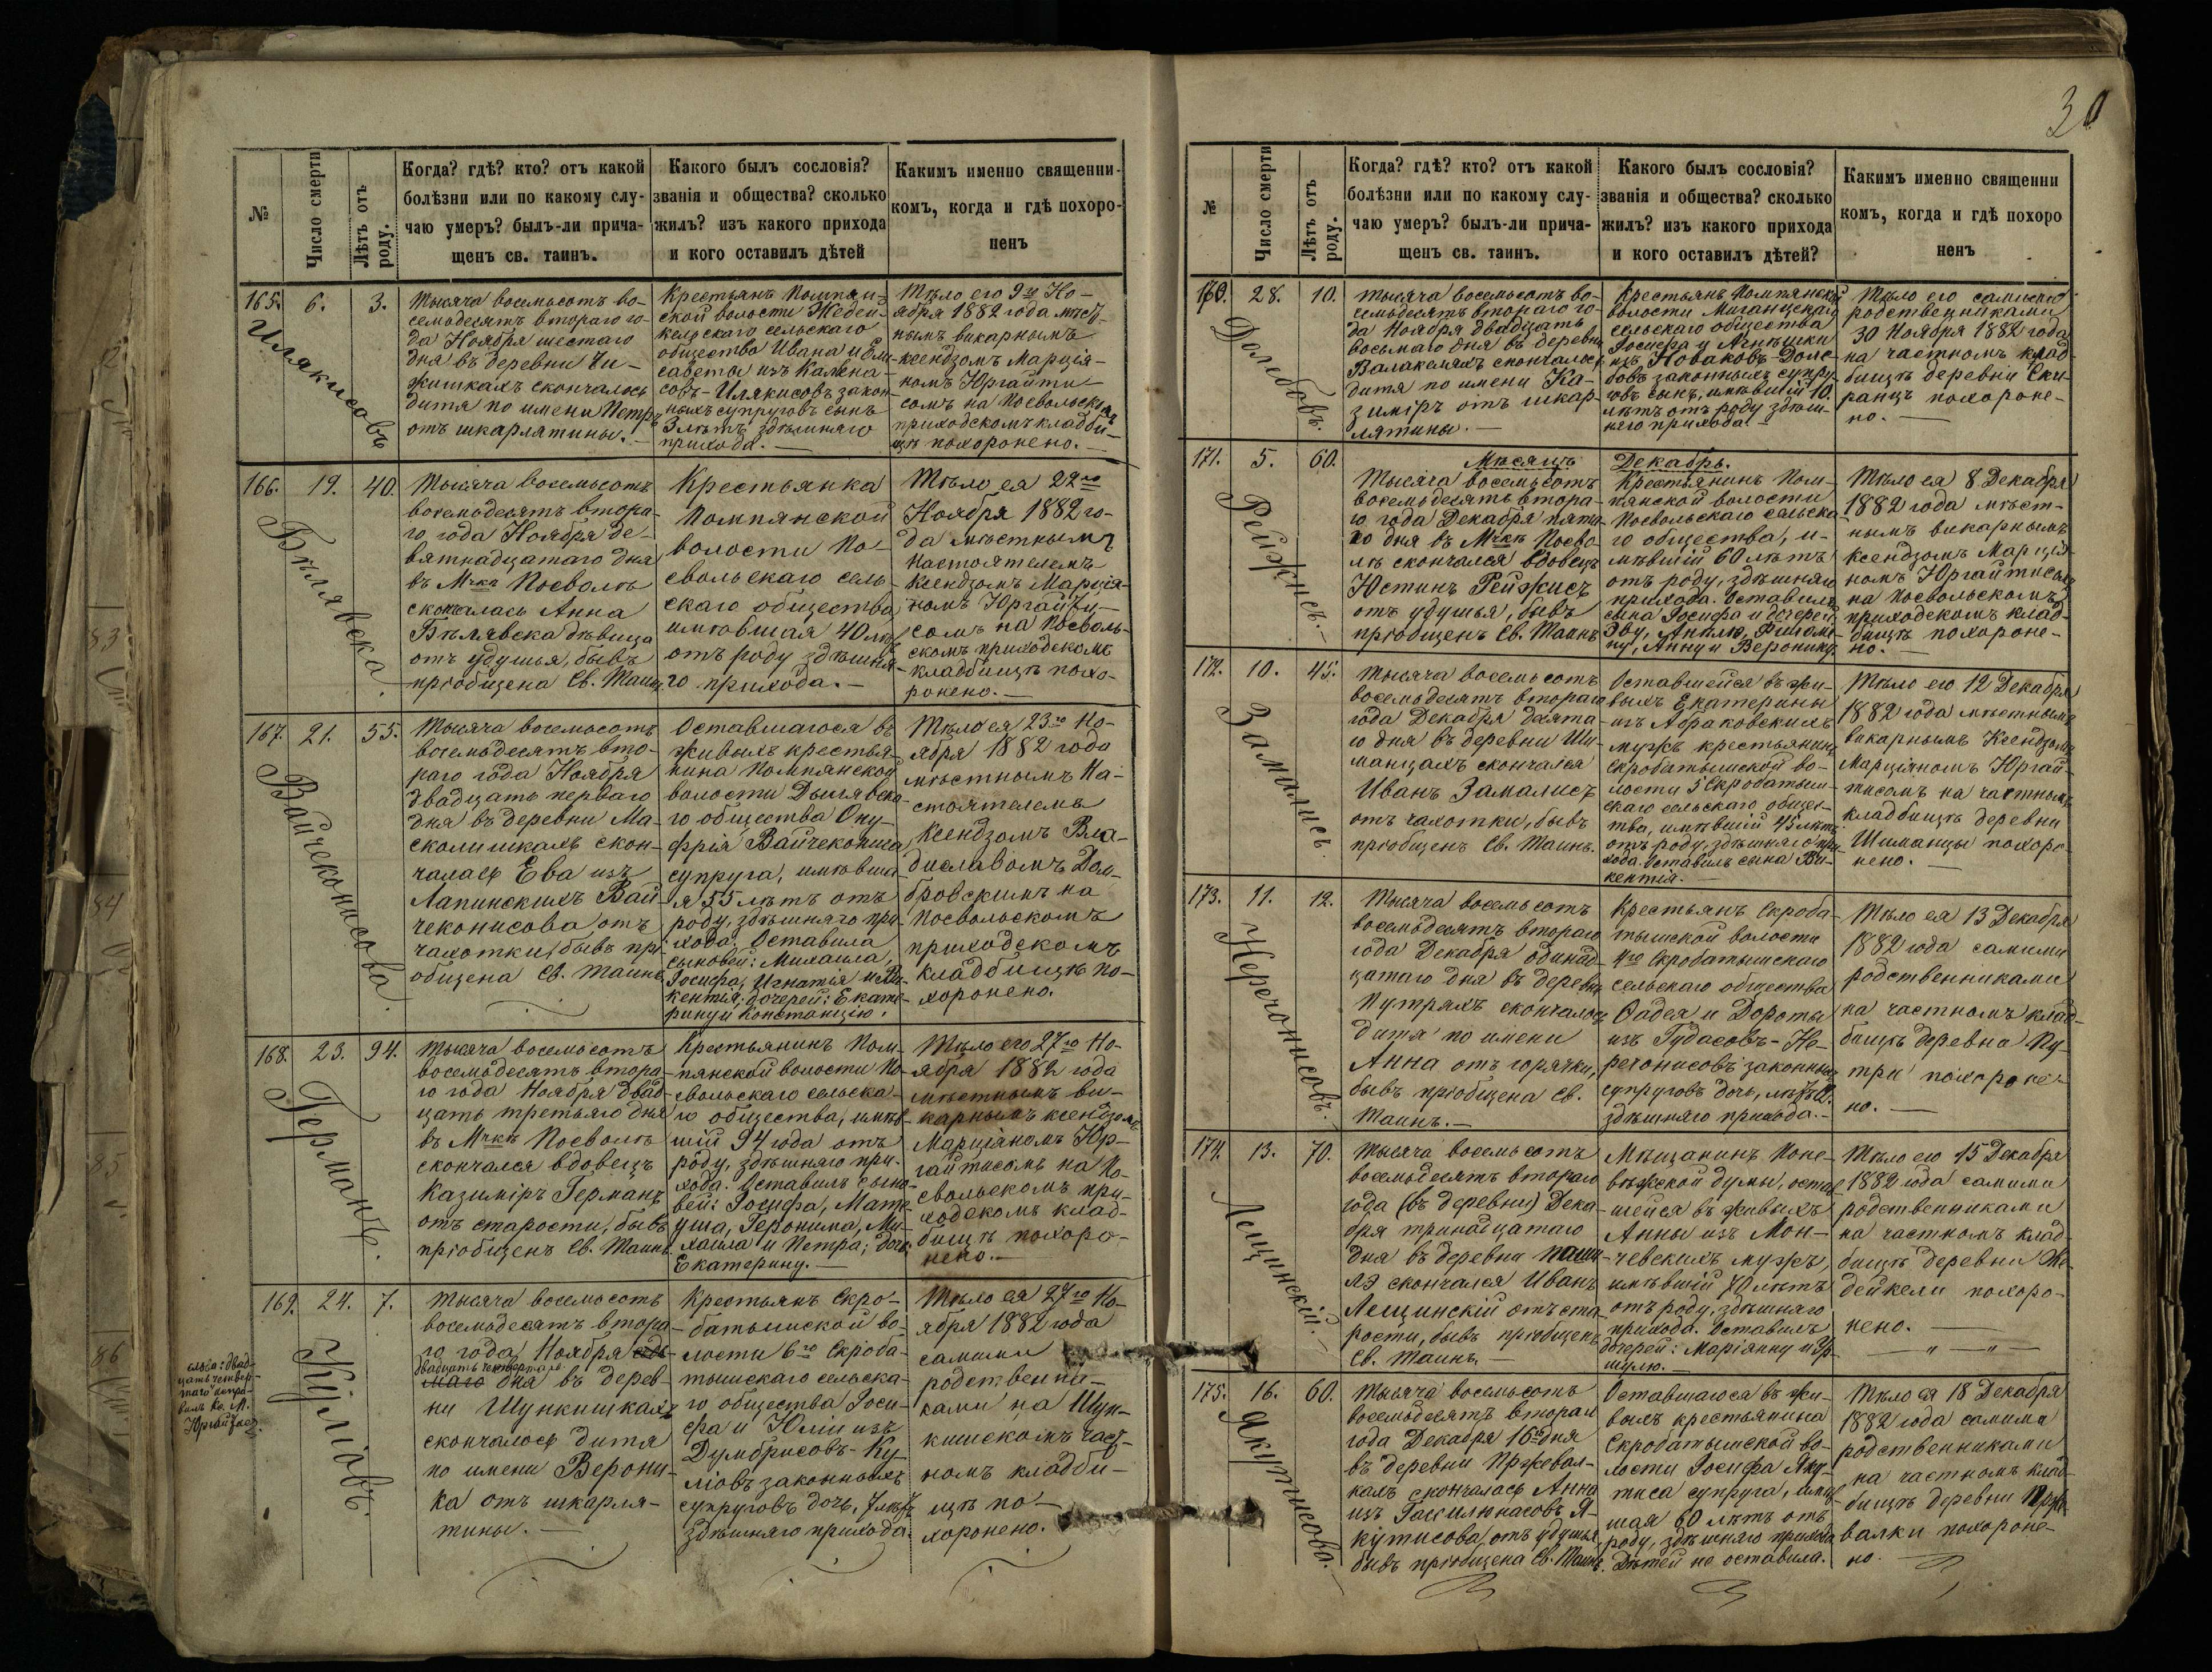 №
Число смерти
Лѣтъ отъ
роду.
Когда? гдѣ? кто? отъ какой
болѣзни или по какому слу-
чаю умеръ? былъ-ли прича-
щенъ св. таинъ.
Какого былъ сословія?
званія и общества? сколько
жилъ? изъ какого прихода
и кого оставилъ дѣтей
Какимъ именно священни-
комъ, когда и гдѣ похоро-
ненъ
165.
Илякисовъ
6.
3.
Тысяча восемьсотъ во-
семьдесятъ втораго го-
да Ноября шестаго
дня въ деревни Чи-
жишкахъ скончалось
дитя по имени Петръ
отъ шкарлятины.
Крестьянъ Помпян-
ской волости Жедей-
кельскаго сельскаго
общества Ивана и Ели-
саветы изъ Калена-
совъ-Илякисовъ закон-
ныхъ супруговъ сынъ
3 лѣтъ здѣшняго
прихода.
Тѣло его 9го Но-
ября 1882 года мѣст-
нымъ викарнымъ
ксендзомъ Марція-
номъ Юргайти-
сомъ на Посвольскомъ
приходскомъ кладби-
щѣ похоронено.
166.
Бѣлявска.
19.
40.
Тысяча восемьсотъ
восемьдесятъ втора-
го года Ноября де-
вятнадцатаго дня
въ Мчкѣ Посволѣ
скончалась Анна
Бѣлявска дѣвица
отъ удушья, бывъ
пріобщена Св. Таинъ
Крестьянка
Помпянской
волости По-
свольскаго сель-
скаго общества
имѣвшая 40 лѣтъ
отъ роду здѣшня-
го прихода.
Тѣло ея 22го
Ноября 1882 го-
да мѣстнымъ
Настоятелемъ
Ксендзомъ Марція-
номъ Юргайти-
сомъ на Посволь-
скомъ приходскомъ
кладбищѣ похо-
ронено.
167.
Вайчеконисова.
21.
55.
Тысяча восемьсотъ
восемьдесятъ вто-
раго года Ноября
двадцать перваго
дня въ деревни Ма-
сколишкахъ скон-
чалась Ева изъ
Лапинскихъ Вай-
чеконисова, отъ
чахотки, бывъ прі-
общена Св. Таинъ
Оставшагося въ
живыхъ крестья-
нина Помпянской
волости Дыглявска-
го общества Ону-
фрія Вайчекониса
супруга, имѣвша-
я 55 лѣтъ отъ
роду, здѣшняго при-
хода. Оставила
сыновей: Михаила,
Іосифа, Игнатія и Ви-
кентія, дочерей: Екате-
рину и Констанцію.
Тѣло ея 23го Но-
ября 1882 года
мѣстнымъ На-
стоятелемъ
Ксендзомъ Вла-
диславомъ Дом-
бровскимъ на
Посвольскомъ
приходскомъ
кладбищѣ по-
хоронено.
168.
Германъ.
23.
94.
Тысяча восемьсотъ
восемьдесятъ втора-
го года Ноября двад-
цать третьяго дня
въ Мчкѣ Посволѣ
скончался вдовецъ
Казиміръ Германъ
отъ старости, бывъ
пріобщенъ Св. Таинъ.
Крестьянинъ Пом-
пянской волости По-
свольскаго сельска-
го общества, имѣв-
шій 94 года отъ
роду, здѣшняго при-
хода. Оставилъ сыно-
вей: Іосифа, Мате-
уша, Геронима, Ми-
хаила и Петра; дочь
Екатерину.
Тѣло его 27го Но-
ября 1882 года
мѣстнымъ ви-
карнымъ ксендзомъ
Марціяномъ Юр-
гайтисомъ на По-
свольскомъ при-
ходскомъ клад-
бищѣ похоро-
нено.
169.
Куліовъ.
24.
7.
Тысяча восемьсотъ
восемьдесятъ втора-
го года Ноября
двадцать четвертаго
дня въ дерев-
ни Шункишкахъ
скончалось дитя
по имени Верони-
ка отъ шкарля-
тины.
Крестьянъ Скро-
батышской во-
лости 6го Скроба-
тышскаго сельска-
го общества Іоси-
фа и Юліи изъ
Думбрисовъ-Ку-
ліовъ законныхъ
супруговъ дочь, 7 лѣтъ
здѣшняго прихода.
Тѣло ея 27го Но-
ября 1882 года
самими
родственни-
ками на Шун-
кишскомъ част-
номъ кладби-
щѣ по-
хоронено.
слова: двад-
цать четвер-
таго испра-
вилъ Кс. М.
Юргайтисъ.
30
№
Число смерти
Лѣтъ отъ
роду.
Когда? гдѣ? кто? отъ какой
болѣзни или по какому слу-
чаю умеръ? былъ-ли прича-
щенъ св. таинъ.
Какого былъ сословія?
званія и общества? сколько
жилъ? изъ какого прихода
и кого оставилъ дѣтей?
Какимъ именно священни
комъ, когда и гдѣ похоро
ненъ
170.
Долебовъ.
28.
10.
Тысяча восемьсотъ во-
семьдесятъ втораго го-
да Ноября двадцать
восьмаго дня въ деревни
Валакеляхъ скончалось
дитя по имени Ка-
зиміръ отъ шкар-
лятины.
Крестьянъ Помпянской
волости Миганцскаго
сельскаго общества
Іосифа и Агнѣшки
изъ Новаковъ-Доле-
бовъ законныхъ супру-
говъ сынъ, имѣвшій 10.
лѣтъ отъ роду здѣш-
няго прихода.
Тѣло его самими
родственниками
30 Ноября 1882 года
на частномъ клад-
бищѣ деревни Ски-
ранцъ похороне-
но.
Мѣсяцъ Декабрь.
171.
Рейжисъ.
5.
60.
Тысяча восемьсотъ
восемьдесятъ втора-
го года Декабря пята-
го дня въ Мчкѣ Посво-
лѣ скончался вдовецъ
Юстинъ Рейжисъ
отъ удушья, бывъ
пріобщенъ Св. Таинъ
Крестьянинъ Пом-
пянской волости
Посвольскаго сельска-
го общества, и-
мѣвшій 60 лѣтъ
отъ роду, здѣшняго
прихода. Оставилъ
сына Іосифа и дочерей
Эву, Анелю, Филоме-
ну, Анну и Веронику
Тѣло ея 8 Декабря
1882 года мѣст-
нымъ викарнымъ
ксендзомъ Марція-
номъ Юргайтисомъ
на Посвольскомъ
приходскомъ клад-
бищѣ похороне-
но.
172.
Замалисъ.
10.
45.
Тысяча восемьсотъ
восемьдесятъ втораго
года Декабря десята-
го дня въ деревни Ши-
манцахъ скончался
Иванъ Замалисъ
отъ чахотки, бывъ
пріобщенъ Св. Таинъ.
Оставшейся въ жи-
выхъ Екатерины
изъ Абраковскихъ
мужъ крестьянинъ
Скробатышской во-
лости 5 Скробатыш-
скаго сельскаго общес-
тва, имѣвшій 45 лѣтъ
отъ роду, здѣшняго при-
хода. Оставилъ сына Ви-
кентія.
Тѣло его 12 Декабря
1882 года мѣстнымъ
викарнымъ Ксендзомъ
Марціяномъ Юргай-
тисомъ на частномъ
кладбищѣ деревни
Шиманцы похоро-
нено.
173.
Неречонисовъ.
11.
12.
Тысяча восемьсотъ
восемьдесятъ втораго
года Декабря одинад-
цатаго дня въ деревни
Путряхъ скончалось
дитя по имени
Анна отъ горячки,
бывъ пріобщена Св.
Таинъ.
Крестьянъ Скроба-
тышской волости
4го Скробатышскаго
сельскаго общества
Фадея и Дороты
изъ Гудасовъ-Не-
речонисовъ законныхъ
супруговъ дочь, лѣтъ 12.
здѣшняго прихода.
Тѣло ея 13 Декабря
1882 года самими
родственниками
на частномъ клад-
бищѣ деревни Пу-
три похороне-
но.
174.
Лещинскій.
13.
70.
Тысяча восемьсотъ
восемьдесятъ втораго
года (въ деревни) Дека-
бря тринадцатаго
дня въ деревни
скончался Иванъ
Лещинскій отъ ста-
рости, бывъ пріобщенъ
Св. Таинъ.
Мѣщанинъ Поне-
вѣжской думы, остав-
шейся въ живыхъ
Анны изъ Мон-
чевскихъ мужъ,
имѣвшій 70 лѣтъ
отъ роду, здѣшняго
прихода. Оставилъ
дочерей: Маріянну и Ур-
шулю.
Тѣло его 15 Декабря
1882 года самими
родственниками
на частномъ клад-
бищѣ деревни Же-
дейкели похоро-
нено.
175.
Якутисова.
16.
60.
Тысяча восемьсотъ
восемьдесятъ втораго
года Декабря 16го дня
въ деревни Пржевал-
кахъ скончалась Анна
изъ Гасилюнасовъ Я-
кутисова, отъ удушья,
бывъ пріобщена Св. Таинъ.
Оставшагося въ жи-
выхъ крестьянина
Скробатышской во-
лости Іосифа Яку-
тиса супруга, имѣв-
шая 60 лѣтъ отъ
роду, здѣшняго прихода.
Дѣтей не оставила.
Тѣло ея 18 Декабря
1882 года самими
родственниками
на частномъ клад-
бищѣ деревни Прже-
валки похороне-
но.